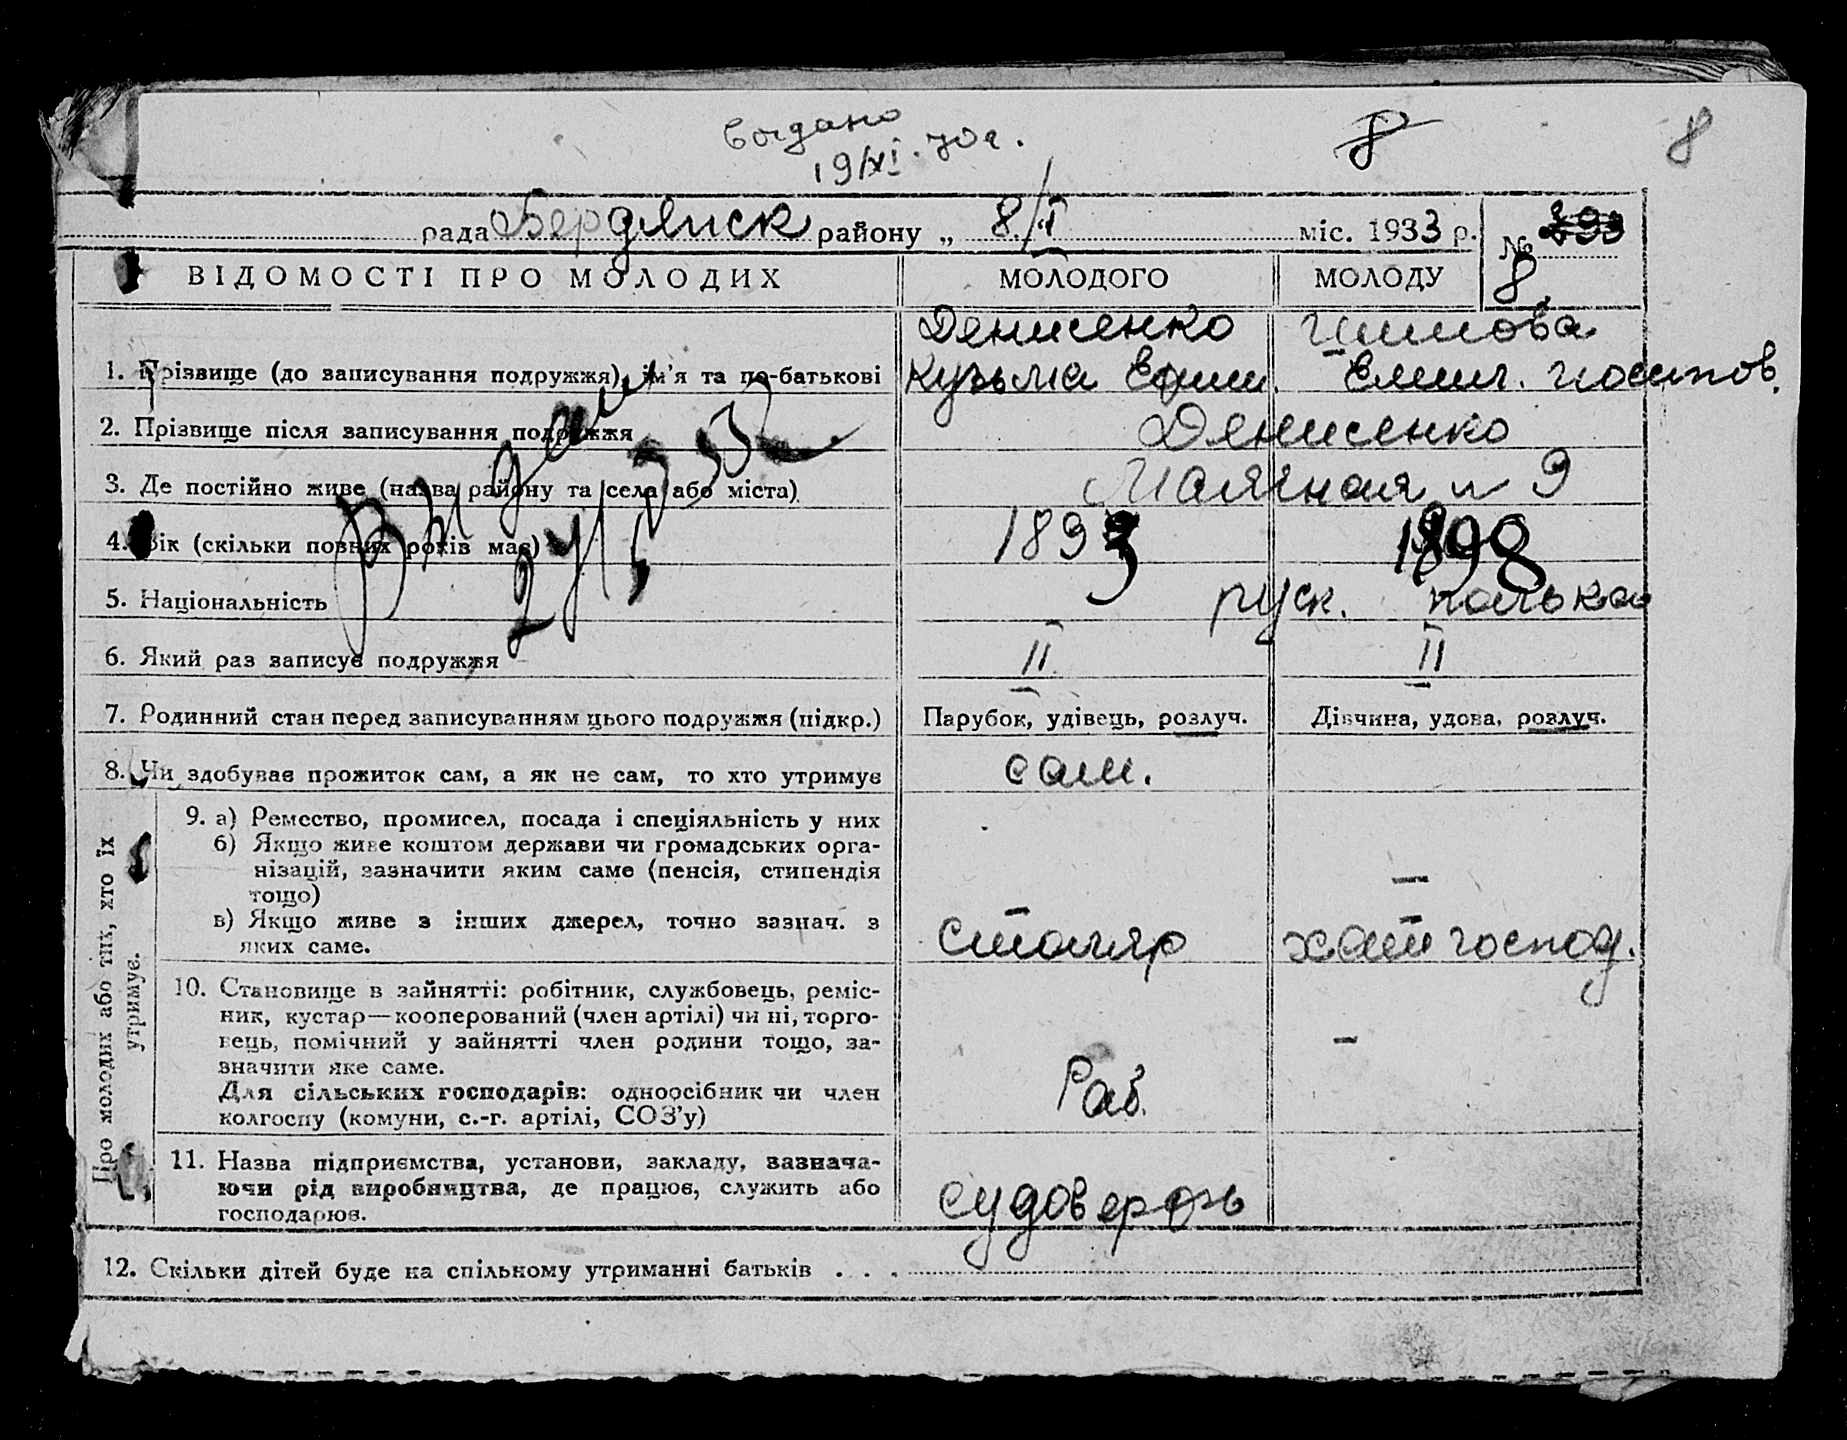 Видано
19/XI. 70 г.
8
8
рада Бердянск району „ 8/I міс. 1933 р.
№ 893
8.
ВІДОМОСТІ ПРО МОЛОДИХ МОЛОДОГО МОЛОДУ
Денисенко
1. Прізвище (до записування подружжя), ім'я та по-батькові Кузьма Ефим. Емил. Иосипов.
2. Прізвище після записування подружжя Денисенко
3. Де постійно живе (назва району та села або міста) Маячная № 9
4. Вік (скільки повних років має) 1893 1898
5. Національність руск. полька
6. Який раз записує подружжя II II
7. Родинний стан перед записуванням цього подружжя (підкр.) Парубок, удівець, розлуч. Дівчина, удова, розлуч.
8. Чи здобуває прожиток сам, а як не сам, то хто утримує сам.
Про молодих або тих, хто їх
утримує.
9. а) Ремество, промисел, посада і спеціяльність у них
б) Якщо живе коштом держави чи громадських орга-
нізацій, зазначити яким саме (пенсія, стипендія
тощо)
в) Якщо живе з інших джерел, точно зазнач. з
яких саме.
столяр хат господ.
10. Становище в зайнятті: робітник, службовець, реміс-
ник, кустар—кооперований (член артілі) чи ні, торго-
вець, помічний у зайнятті член родини тощо, за-
значити яке саме.
Для сільських господарів: одноосібник чи член
колгоспу (комуни, с.-г. артілі, СОЗ'у)
Раб. -
11. Назва підприємства, установи, закладу, зазнача-
ючи рід виробництва, де працює, служить або
господарює.
судоверфь
12. Скільки дітей буде на спільному утриманні батьків . . .
Видан